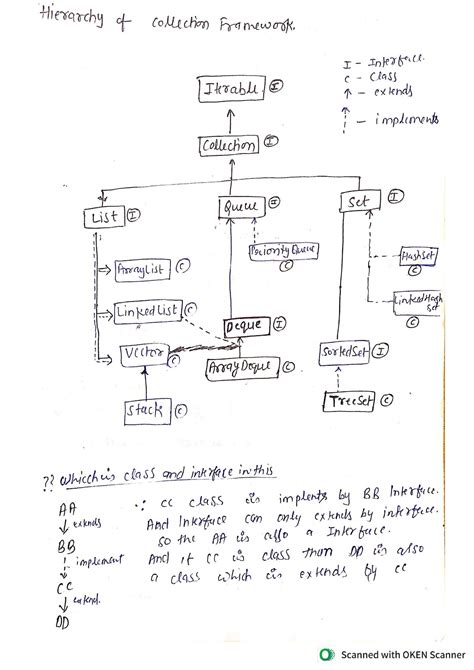 Hierarchy of collection Framework.
I - Interface.
C - Class
↑ - extends
↑ - implements
Iterable I
Collection I
List I
Queue I
Set I
PriorityQueue C
HashSet C
ArrayList C
LinkedHash Set C
LinkedList C
Deque I
Vector C
SortedSet I
ArrayDeque C
Stack C
TreeSet C
?? Whicch is class and interface in this
AA
↓ extends
BB
↓ implement
CC
↓ extend.
DD
∵ CC class is implents by BB Interface.
And Interface can only extends by interface.
so the AA is also a Interface.
And if CC is class than DD is also
a class which is extends by CC
Scanned with OKEN Scanner